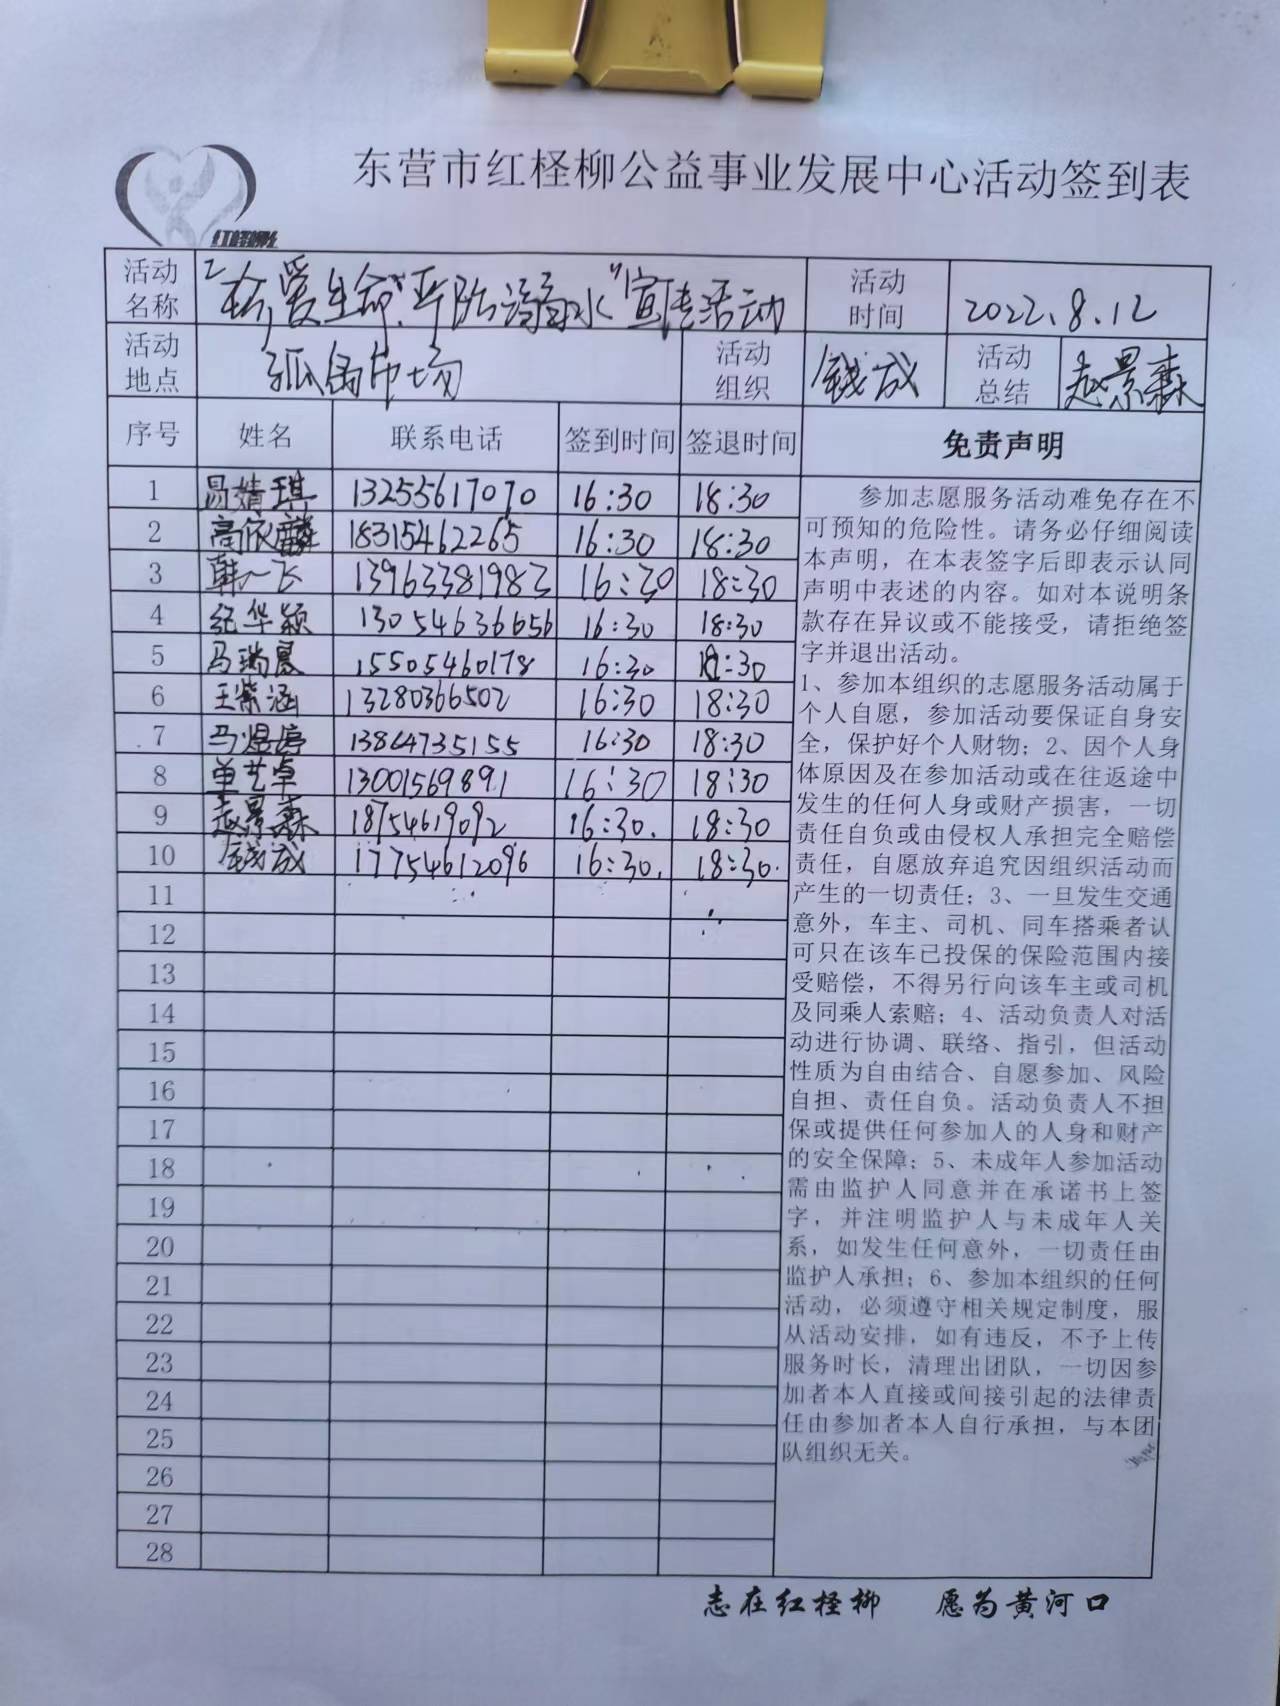 东营市红柽柳公益事业发展中心活动签到表
活动名称 "珍爱生命,严防溺水"宣传活动 活动时间 2022.8.12
活动地点 孤岛市场 活动组织 钱成 活动总结 赵景森
序号 姓名 联系电话 签到时间 签退时间 免责声明
1 易婧琪 13255617070 16:30 18:30
2 高依麟 18315462265 16:30 18:30
3 韩一飞 13963381983 16:30 18:30
4 纪华颖 13054636656 16:30 18:30
5 马瑞晨 15505460178 16:30 18:30
6 王紫涵 13280366502 16:30 18:30
7 马煜婷 13864735155 16:30 18:30
8 单艺卓 13001569891 16:30 18:30
9 赵景森 18754619092 16:30. 18:30
10 钱成 17754612096 16:30. 18:30.
11
12
13
14
15
16
17
18
19
20
21
22
23
24
25
26
27
28
参加志愿服务活动难免存在不
可预知的危险性。请务必仔细阅读
本声明，在本表签字后即表示认同
声明中表述的内容。如对本说明条
款存在异议或不能接受，请拒绝签
字并退出活动。
1、参加本组织的志愿服务活动属于
个人自愿，参加活动要保证自身安
全，保护好个人财物；2、因个人身
体原因及在参加活动或在往返途中
发生的任何人身或财产损害，一切
责任自负或由侵权人承担完全赔偿
责任，自愿放弃追究因组织活动而
产生的一切责任；3、一旦发生交通
意外，车主、司机、同车搭乘者认
可只在该车已投保的保险范围内接
受赔偿，不得另行向该车主或司机
及同乘人索赔；4、活动负责人对活
动进行协调、联络、指引，但活动
性质为自由结合、自愿参加、风险
自担、责任自负。活动负责人不担
保或提供任何参加人的人身和财产
的安全保障；5、未成年人参加活动
需由监护人同意并在承诺书上签
字，并注明监护人与未成年人关
系，如发生任何意外，一切责任由
监护人承担；6、参加本组织的任何
活动，必须遵守相关规定制度，服
从活动安排，如有违反，不予上传
服务时长，清理出团队，一切因参
加者本人直接或间接引起的法律责
任由参加者本人自行承担，与本团
队组织无关。
志在红柽柳 愿为黄河口